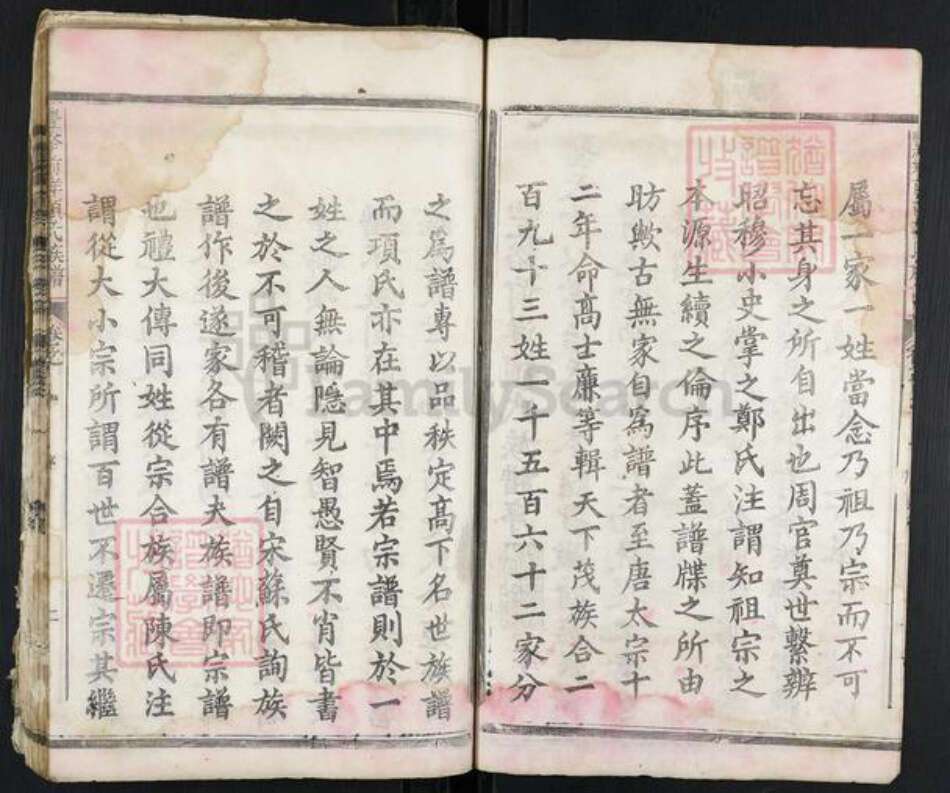 屬一家一姓當念乃祖乃宗而不可
忘其身之所自出也周官奠世繫辨
昭穆小史掌之鄭氏注謂知祖宗之
本源生續之倫序此蓋譜牒之所由
昉歟古無家自為譜者至唐太宗十
二年命高士廉等輯天下茂族合二
百九十三姓一千五百六十二家分
之為譜專以品秩定高下名世族譜
而項氏亦在其中焉若宗譜則於一
姓之人無論隱見智愚賢不肖皆書
之於不可稽者闕之自宋蘇氏詢族
譜作後遂家各有譜夫族譜即宗譜
也禮大傳同姓從宗合族屬陳氏注
謂從大小宗所謂百世不遷宗其繼
項氏族譜
FamilySearch